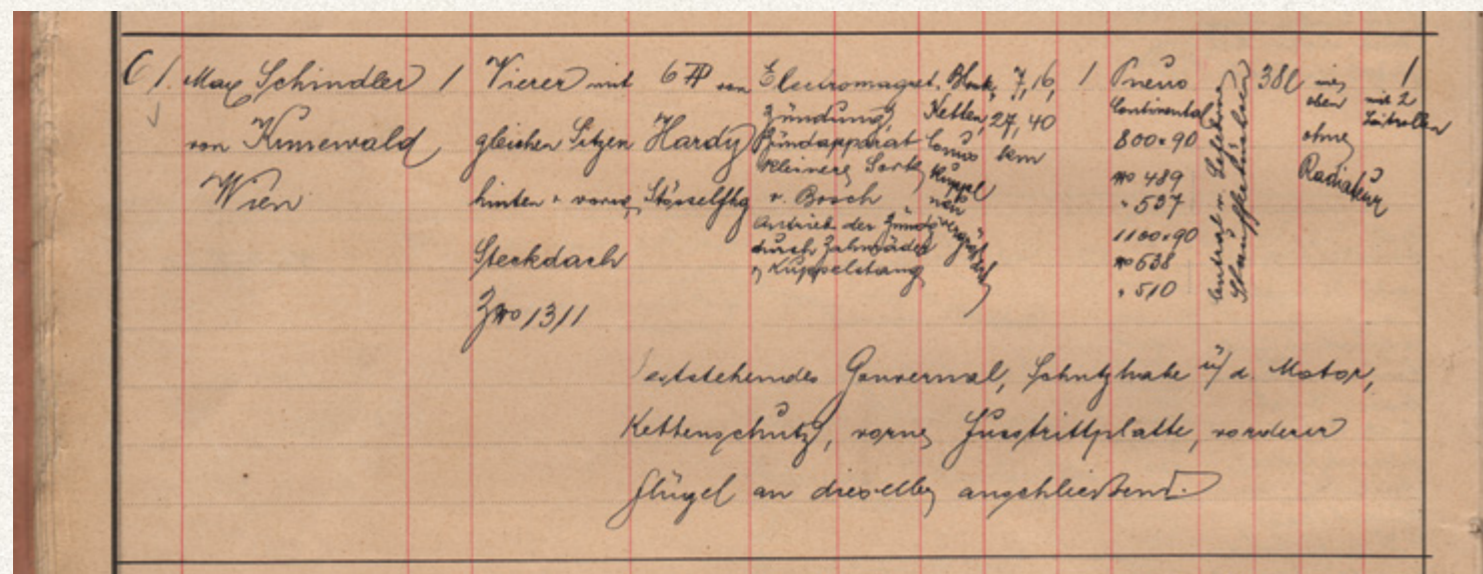 61. Max Schindler
von Kunewald
Wien
1
Vierer mit
gleichen Sitzen
hinten u. vorne
Steckdach
No 1311
6 HP von
Hardy
Stösselfhg
Electromagnet.
Zündung
Zündapparat
kleinere Sorte
v. Bosch
Antrieb der Zündg
durch Zahnräder
u. Kuppelstang
Ketten
Conus
7, 16,
27, 40
km
1
Pneus
Continental
800×90
No 489
" 537
1100×90
No 638
" 510
Central u.
Stauffferbüchsen
38l
oben
ohne
Radiateur
1
mit 2
feststehendes Gouvernal, Schutzhaube ü/d. Motor,
Kettenschutz, vorne Fusstrittplatte, vorderer
Flügel an dieselbe anschliessend.